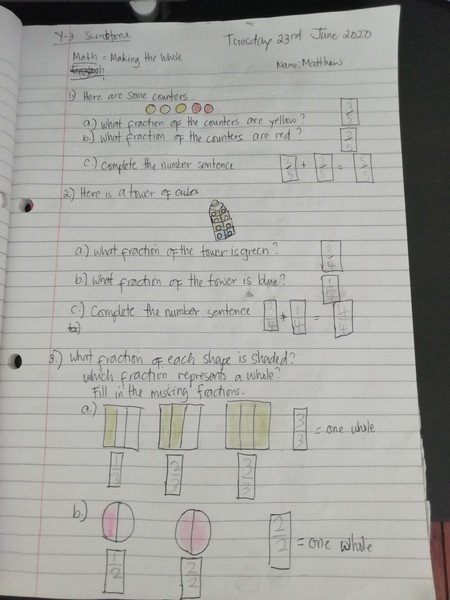 Y-3 Sunstone
Tuesday 23rd June 2020
Math = Making the Whole
English
Name: Matthew
1) Here are some counters
a.) What fraction of the counters are yellow? 3/5
b.) What fraction of the counters are red? 2/5
c.) Complete the number sentence 3/5 + 2/5 = 5/5
2) Here is a tower of cubes
a.) What fraction of the tower is green? 3/4
b.) What fraction of the tower is blue? 1/4
c.) Complete the number sentence 3/4 + 1/4 = 4/4
3.) What fraction of each shape is shaded?
which fraction represents a whole?
Fill in the missing fractions.
a.) 3/3 = one whole
1/3 2/3 3/3
b.) 2/2 = one whole
1/2 2/2